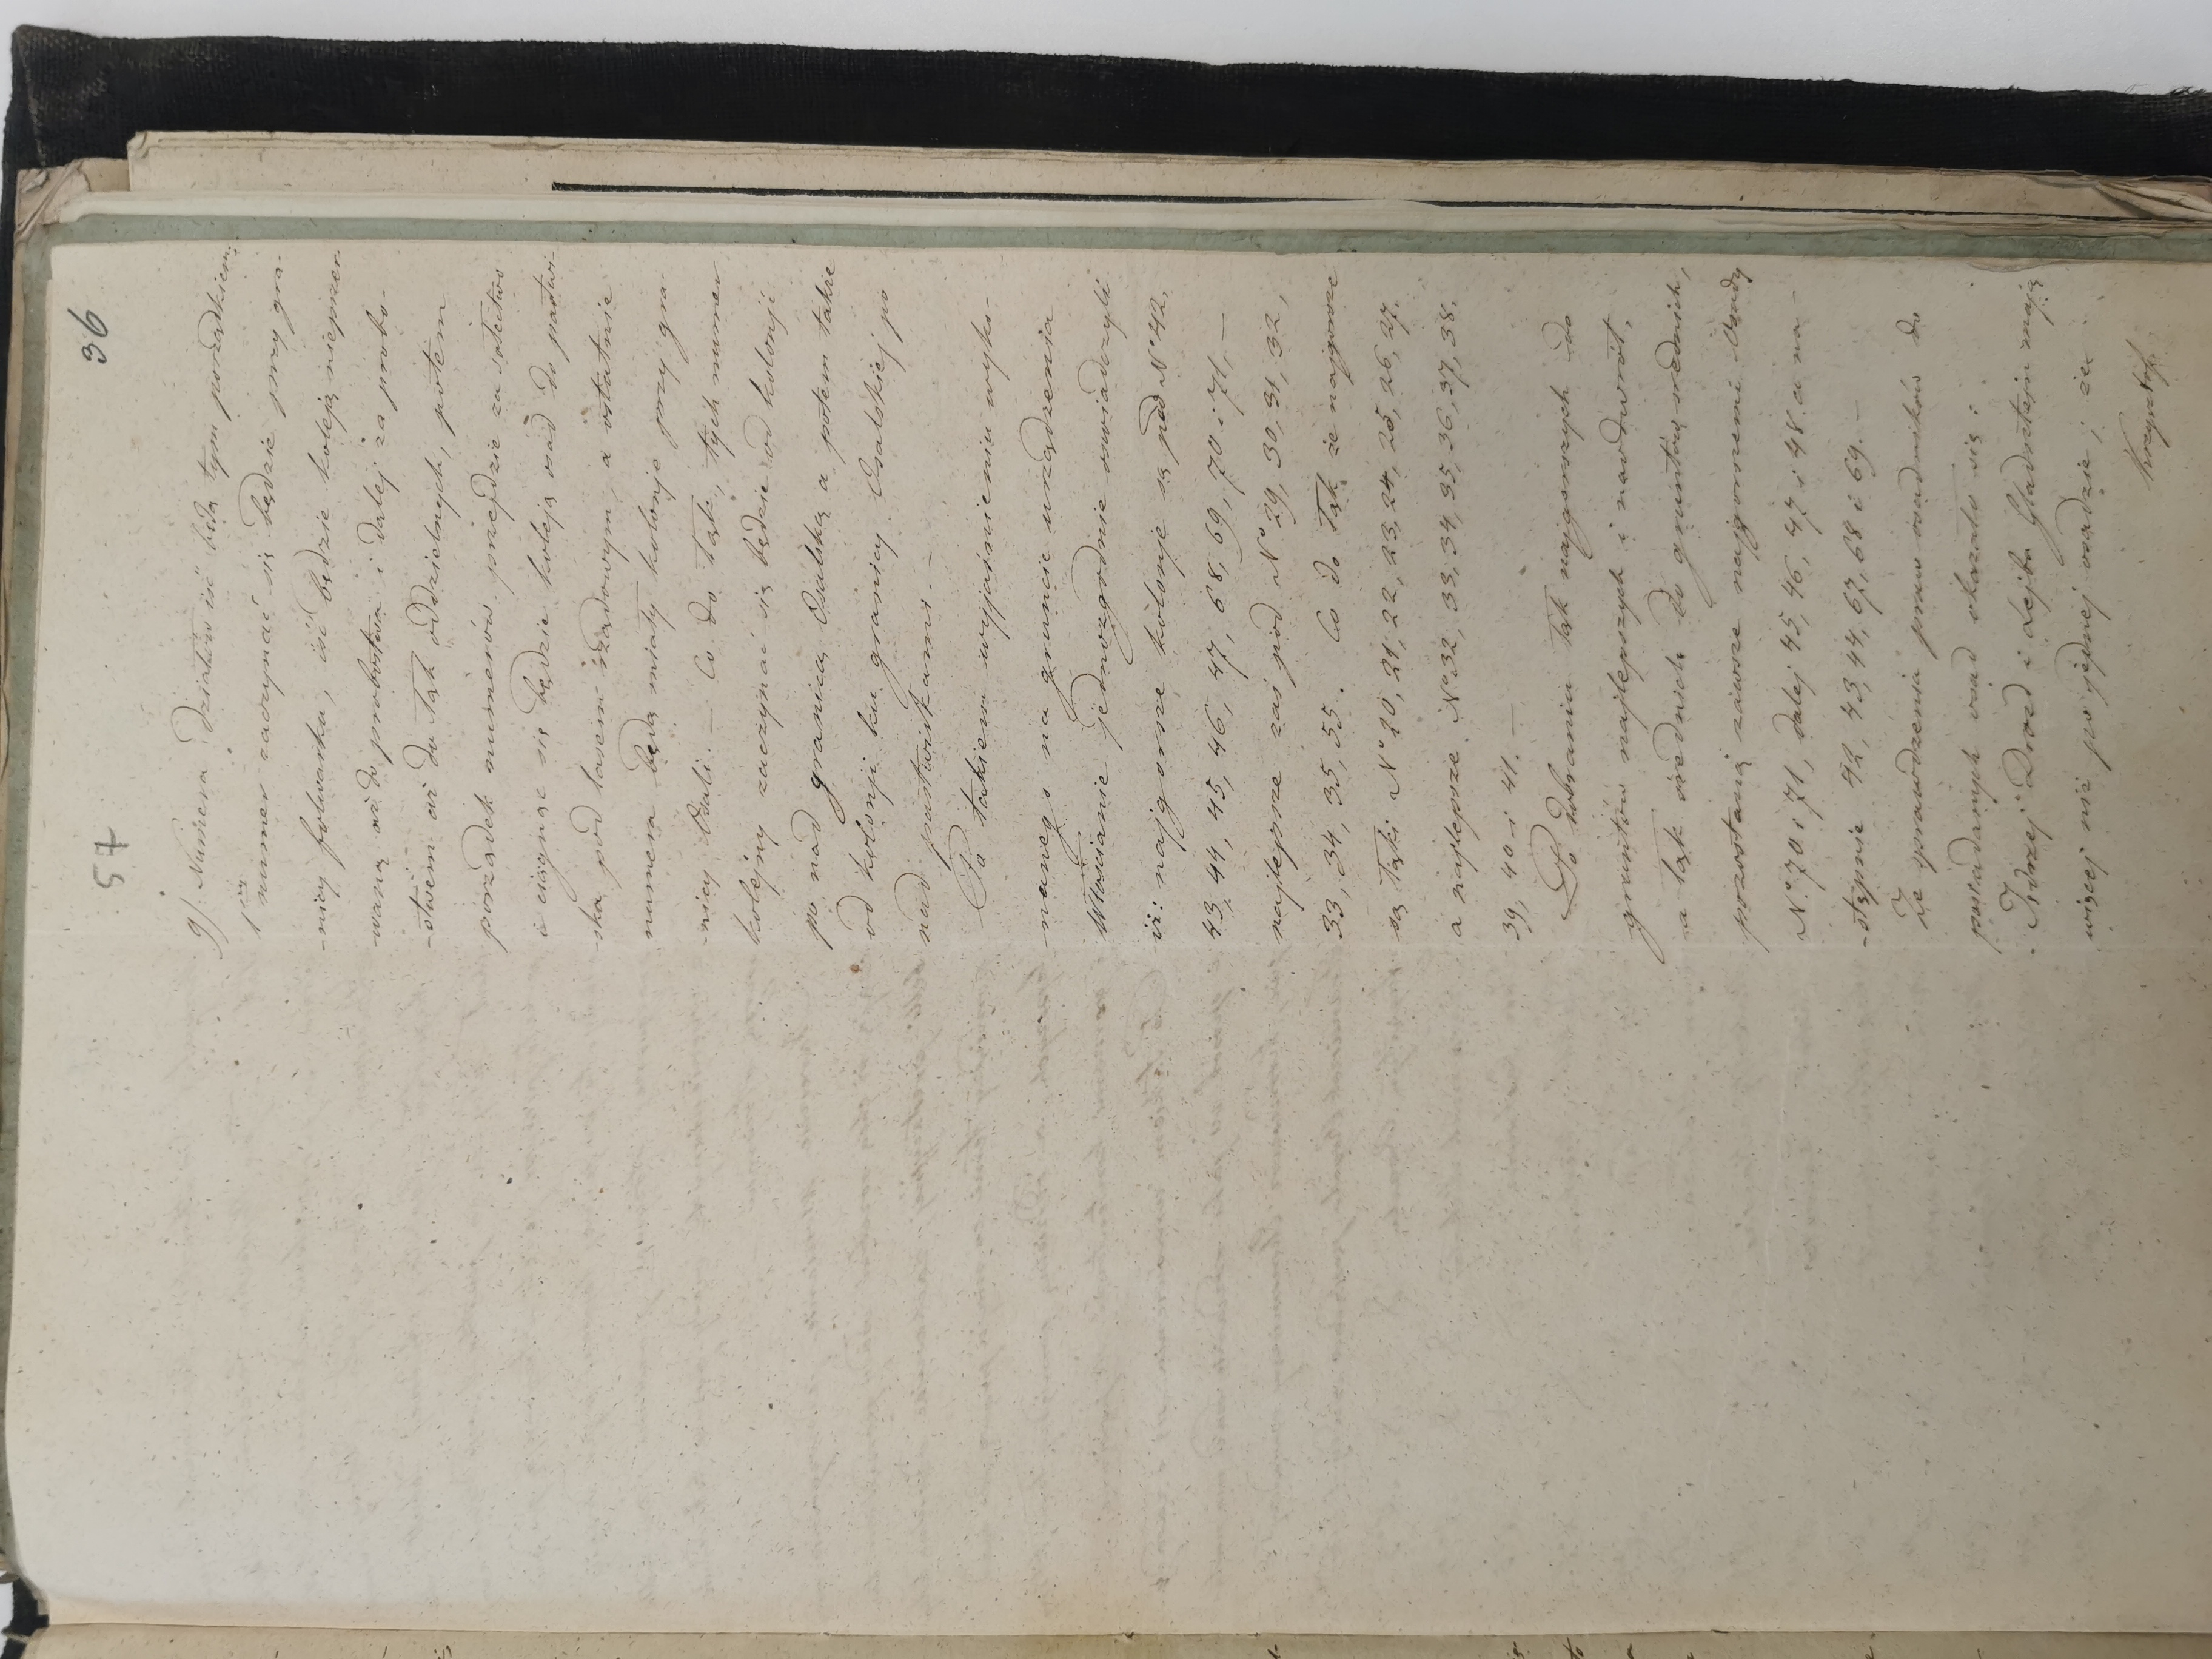 36
57
9/. Numera działów iść będą tym porządkiem:
1szy numer zaczynać się będzie przy gra-
-nicy folwarku, iść będzie koleją nieprzer-
-waną aż do probostwa i dalej za probo-
-stwem aż do Łąk oddzielnych, potem
porządek numerów przejdzie za sołectwo
i ciągnąć się będzie koleją osad do pastwi-
ska pod lasem rządowym, a ostatnie
numera będą miały kolonje przy gra-
-nicy Osali. — Co do Łąk, tych numer
kolejny zaczynać się będzie od kolonji
po nad granicą Osalską a potem także
od kolonji ku granicy Osalskiej po
nad pastwiskami. —
Po takiem wyjaśnieniu wyko-
-nanego na gruncie urządzenia
Włościanie jednozgodnie oświadczyli
iż: najgorsze kolonje są pod No 42,
43, 44, 45, 46, 47, 68, 69, 70 i 71, —
najlepsze zaś pod No 29, 30, 31, 32,
33, 34, 35, 55. Co do Łąk że najgorsze
są Łąki No 20, 21, 22, 23, 24, 25, 26, 27,
a najlepsze No 32, 33, 34, 35, 36, 37, 38,
39, 40 i 41. —
Po dobraniu Łąk najgorszych do
gruntów najlepszych i naodwrót,
a łąk średnich do gruntów średnich,
pozostaną zawsze najgorszemi Osady
No 70 i 71, dalej 45, 46, 47 i 48 a na-
-stępnie 42, 43, 44, 67, 68 i 69. —
Ze sprawdzenia praw osadników do
posiadanych osad okazało się:
Drozd i Lejba mają
więcej niż po jednej osadzie, i że
Krzysztof